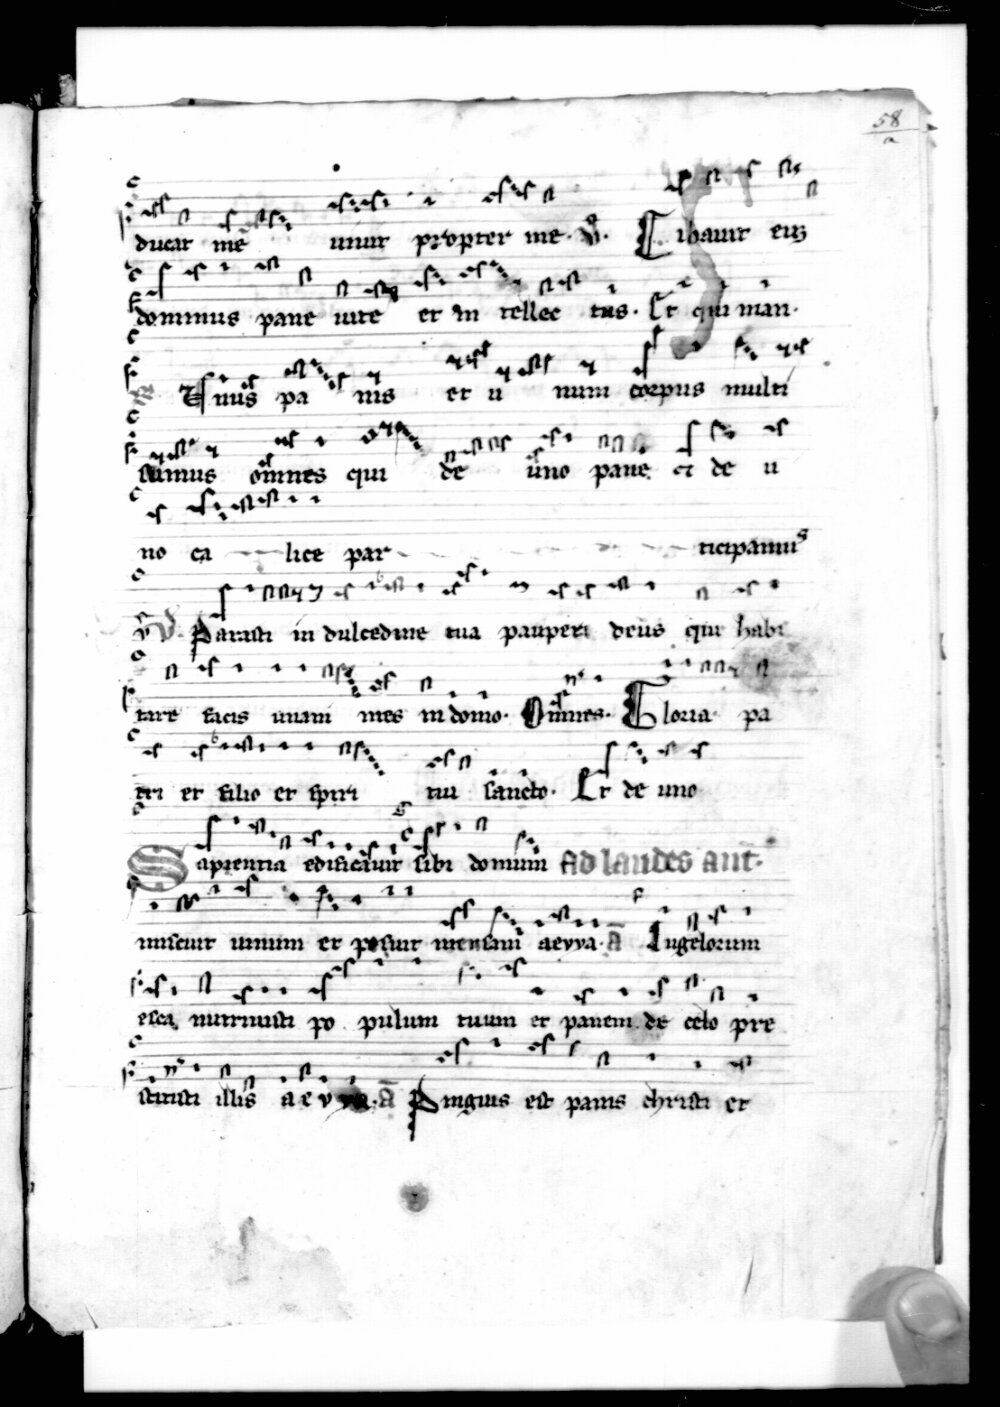 58
a
ducat me uiuit propter me. V. Cibauit eu3
dominus pane uite et in tellec tus. Et qui man.
R Unus pa nis et u num corpus multi
sumus omnes qui de uno pane et de u
no ca lice par ticipamus
V. Parasti in dulcedine tua pauperi deus qui habi
tare facis unam mes in domo. Omnes. Gloria pa
tri et filio et spiri tui sancto. Et de uno
Sapientia edificauit sibi domum Ad laudes ant.
miscuit uinum et posuit mensam aeuya. A Angelorum
esca nutriuisti po pulum tuum et panem de celo pre
stitisti illis a e v ya. A Pinguis est panis christi et